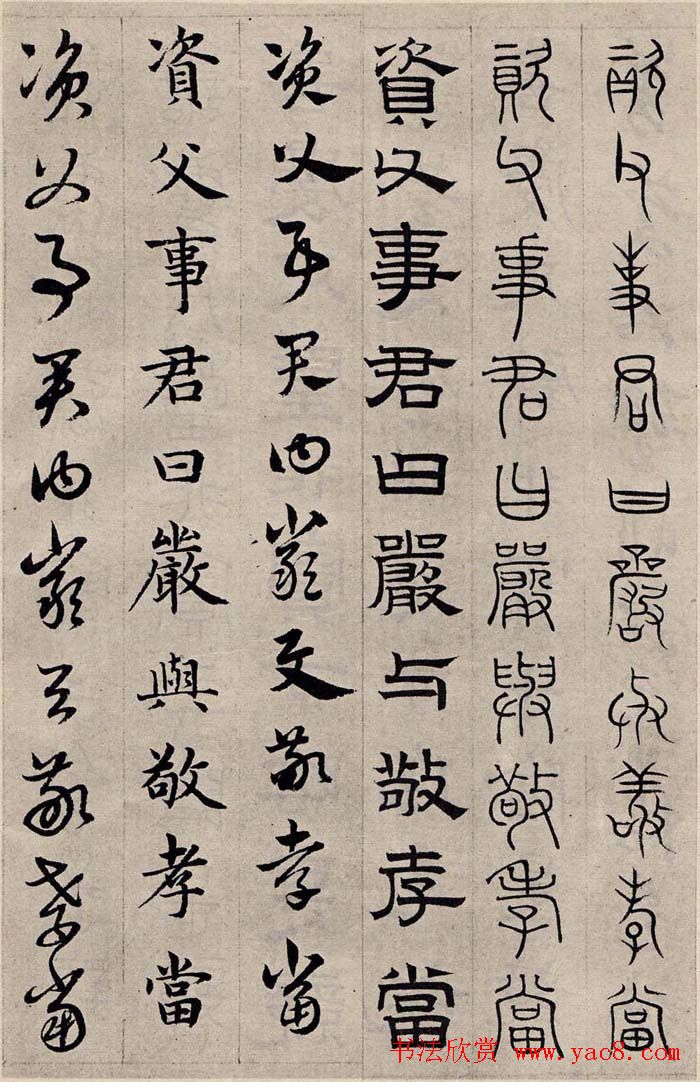 資父事君曰嚴與敬孝當
資父事君曰嚴與敬孝當
資父事君曰嚴与敬孝當
資父事君曰嚴與敬孝當
資父事君曰嚴與敬孝當
資父事君曰嚴與敬孝當
书法欣赏 www.yac8.com